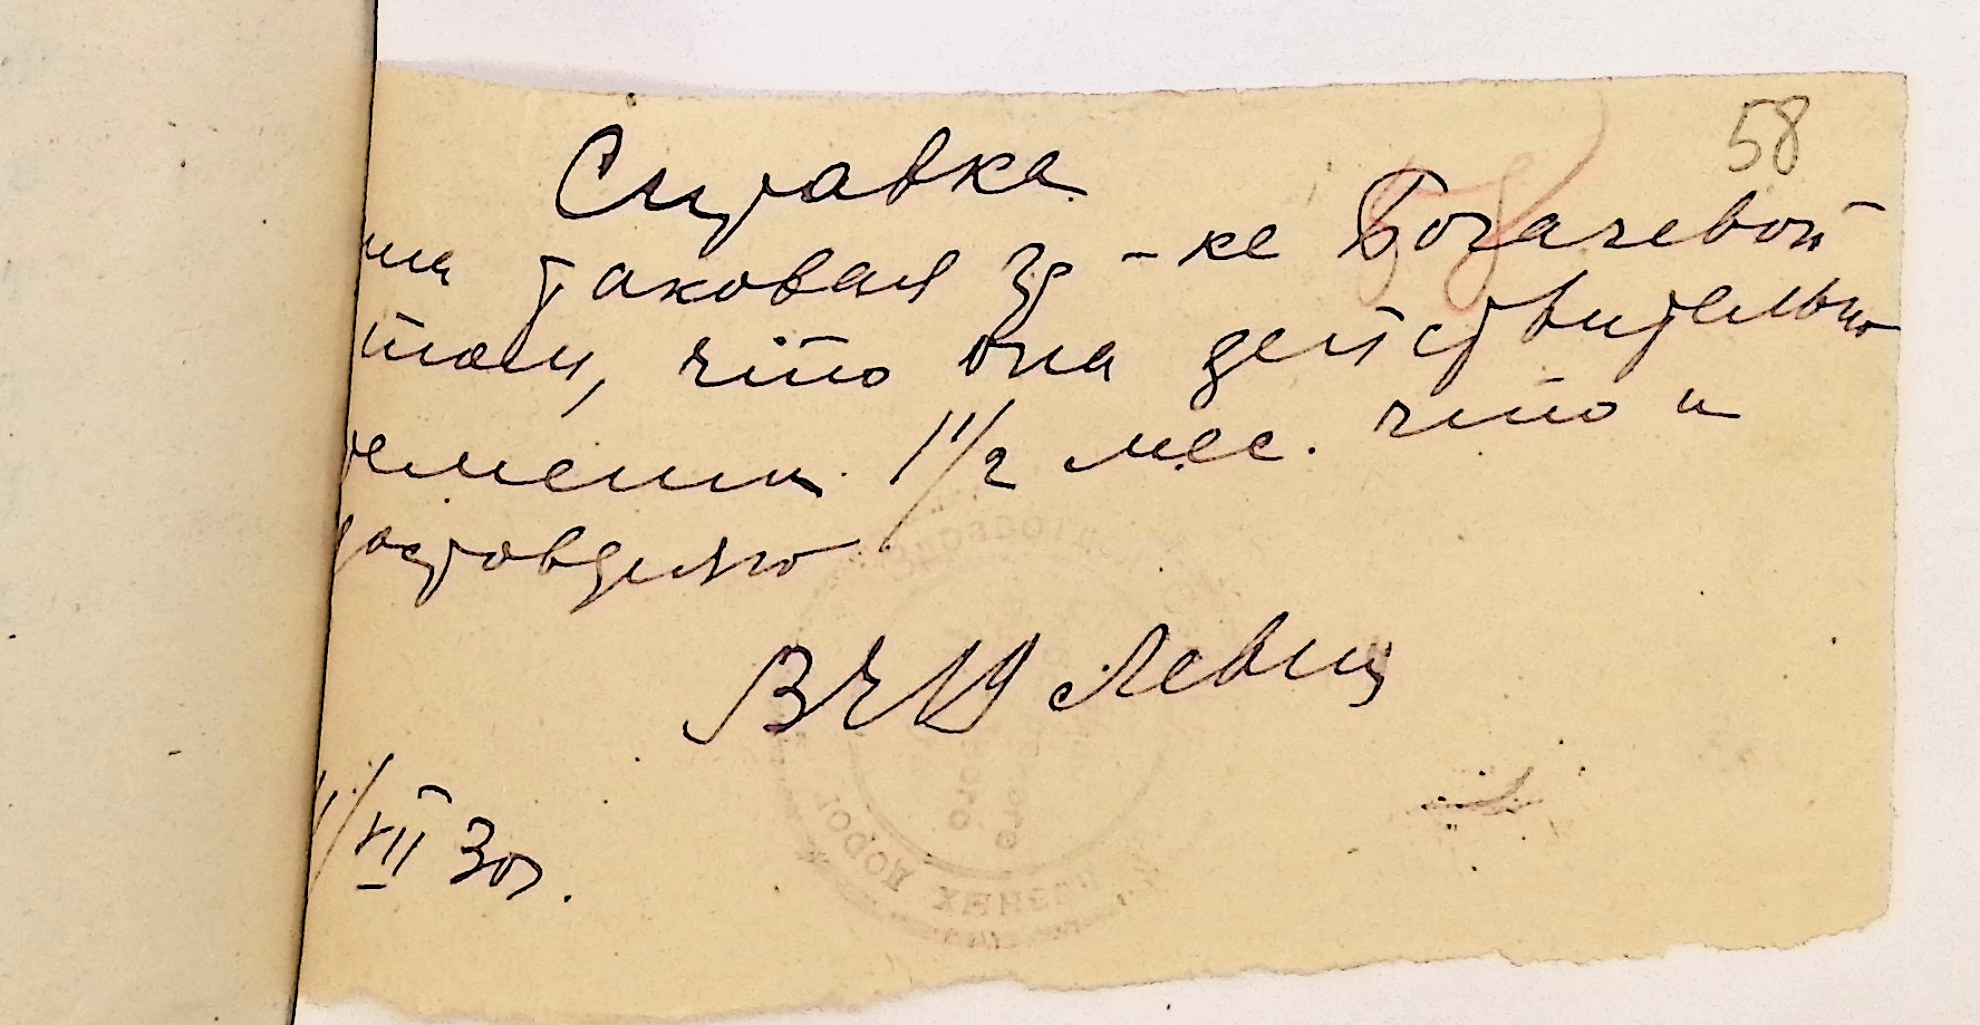 58
Справка
на таковая гр-ке Богачевой
том, что она действительно
ременна 1 1/2 мес. что и
достоверяю
ВЧ Левиц
1/VII 30г.
ДОРОГ